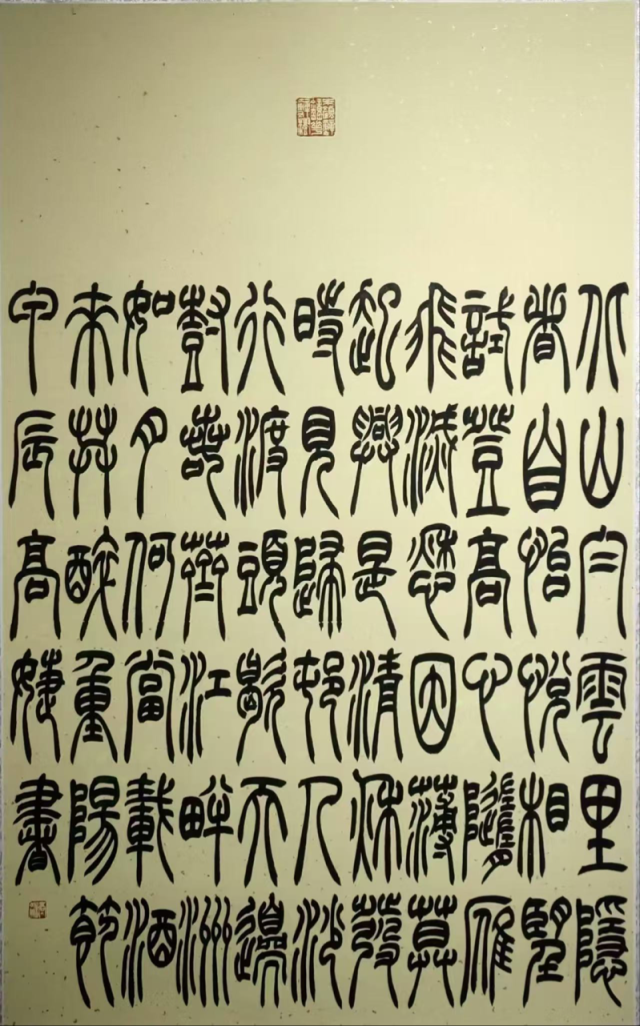 北山白雲里隱
者自怡悅相望
試登高心隨雁
飛滅愁因薄莫
起興是清秋發
時見歸邨人沙
行渡頭歇天邊
樹若薺江畔洲
如月何當載酒
來共醉重陽節
甲辰高婕書